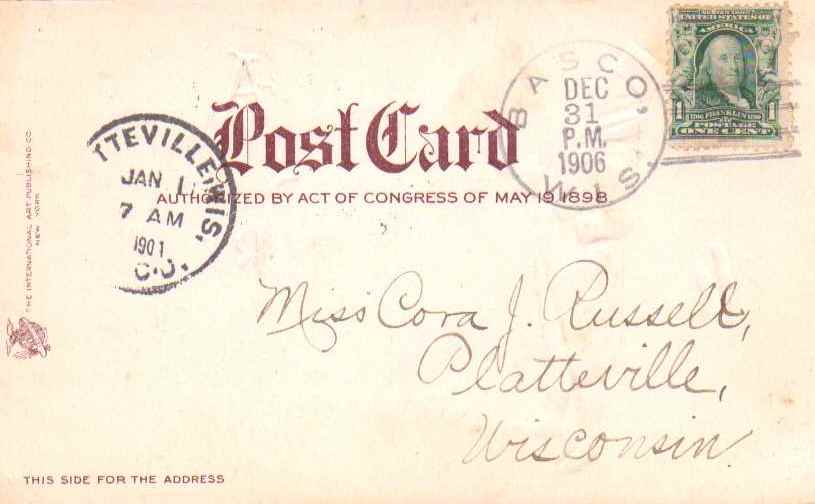 UNITED STATES OF
AMERICA
1
1
FRANKLIN
POSTAGE
ONE CENT
BASCO, WIS.
DEC
31
P.M.
1906
Post Card
AUTHORIZED BY ACT OF CONGRESS OF MAY 19, 1898.
TTEVILLE, WIS.
JAN 1
7 AM
1901
THE INTERNATIONAL ART PUBLISHING CO.
NEW YORK
Miss Cora J. Russell,
Platteville,
Wisconsin.
THIS SIDE FOR THE ADDRESS